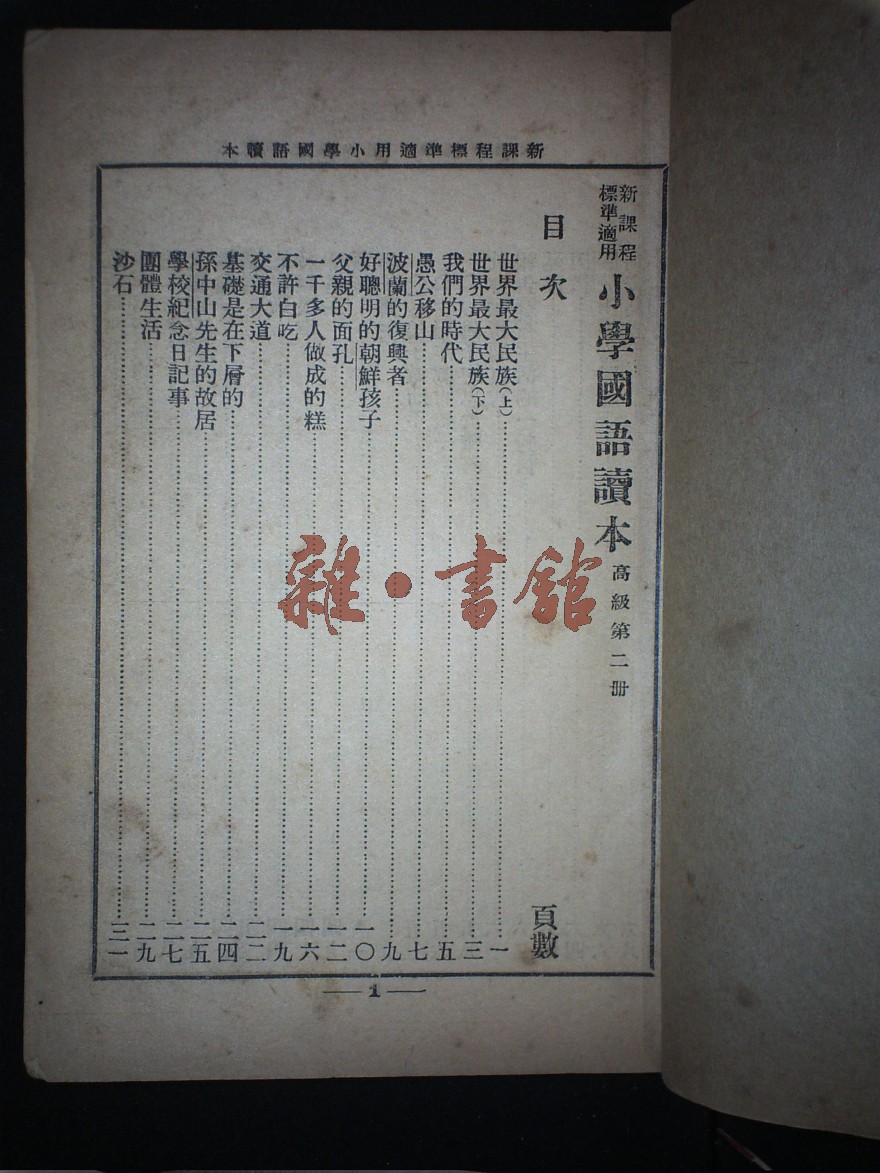 新課程標準適用小學國語讀本
新課程標準適用
小學國語讀本 高級第二册
目次 頁數
世界最大民族(上)……一
世界最大民族(下)……三
我們的時代……五
愚公移山……七
波蘭的復興者……九
好聰明的朝鮮孩子……一〇
父親的面孔……一二
一千多人做成的糕……一六
不許白吃……一九
交通大道……二二
基礎是在下層的……二四
孫中山先生的故居……二五
學校紀念日記事……二七
團體生活……二九
沙石……三一
— 1 —
雜·書館